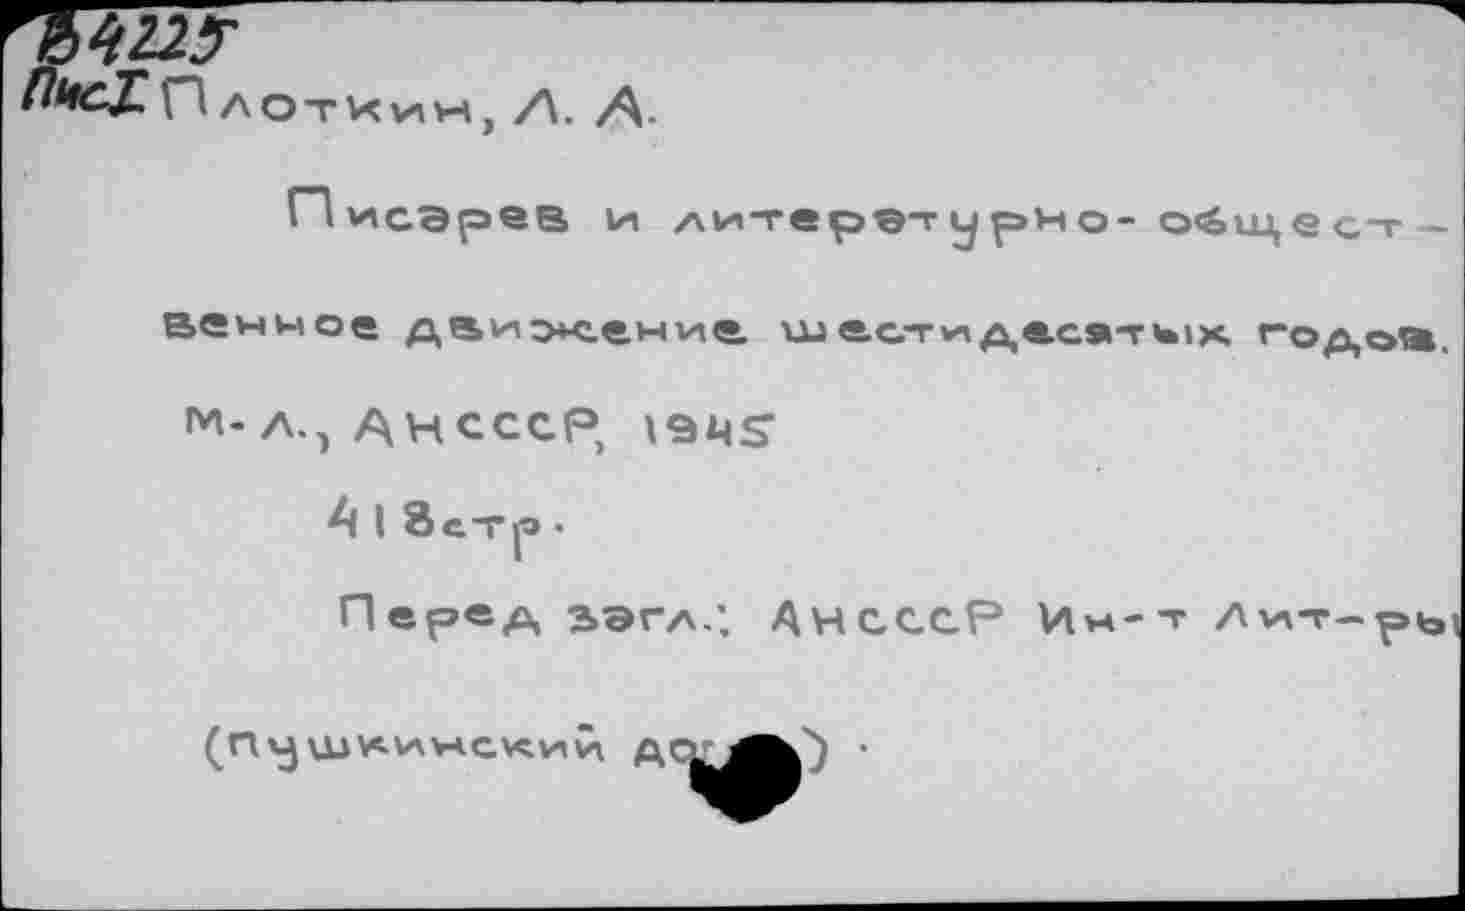 Б4225
ПисI Плоткин, Л. А.
Писарев и литературно-общест-
венное движение шестидесятых годов.
М.-Л., АНСССР, 1945
418стр.
Перед загл.: АНСССР Ин-т Лит-ры
(Пушкинский дом).